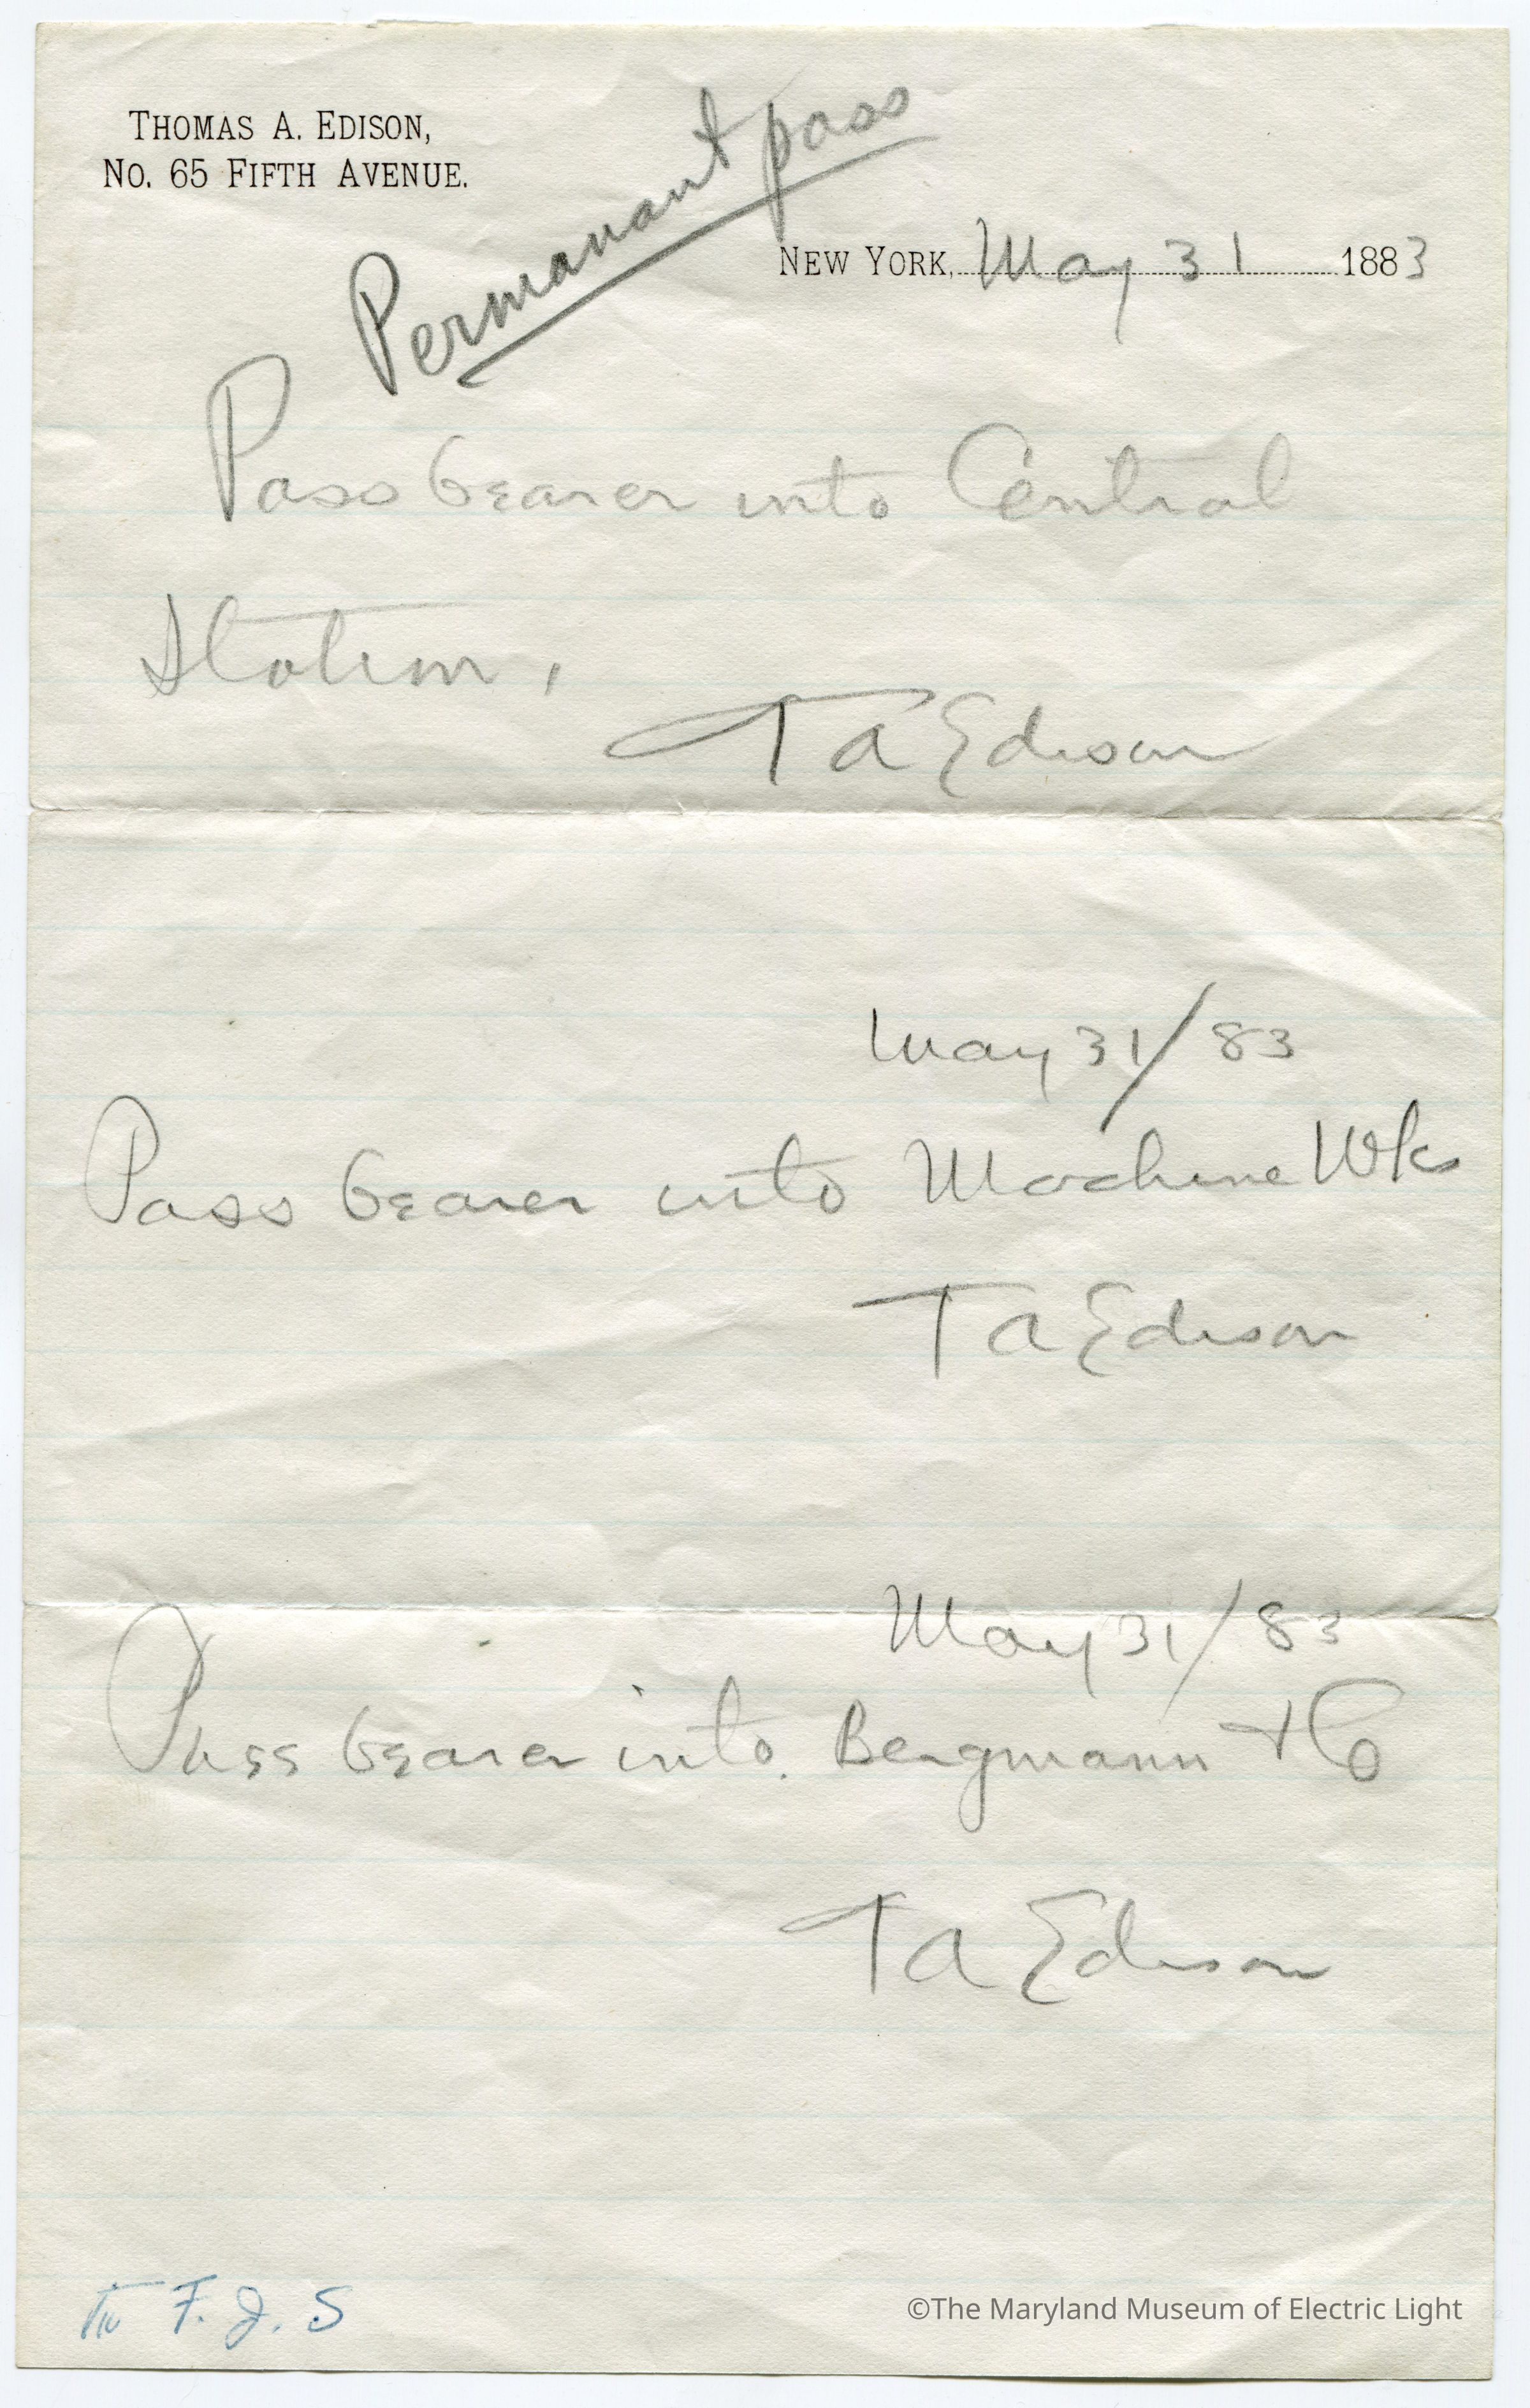 THOMAS A. EDISON,
NO. 65 FIFTH AVENUE.
Permanant pass
NEW YORK, May 31 1883
Pass bearer into Central
Station,
T A Edison
May 31/83
Pass bearer into Machine Wks
T A Edison
May 31/83
Pass bearer into Bergmann + Co
T A Edison
F. J. S
©The Maryland Museum of Electric Light